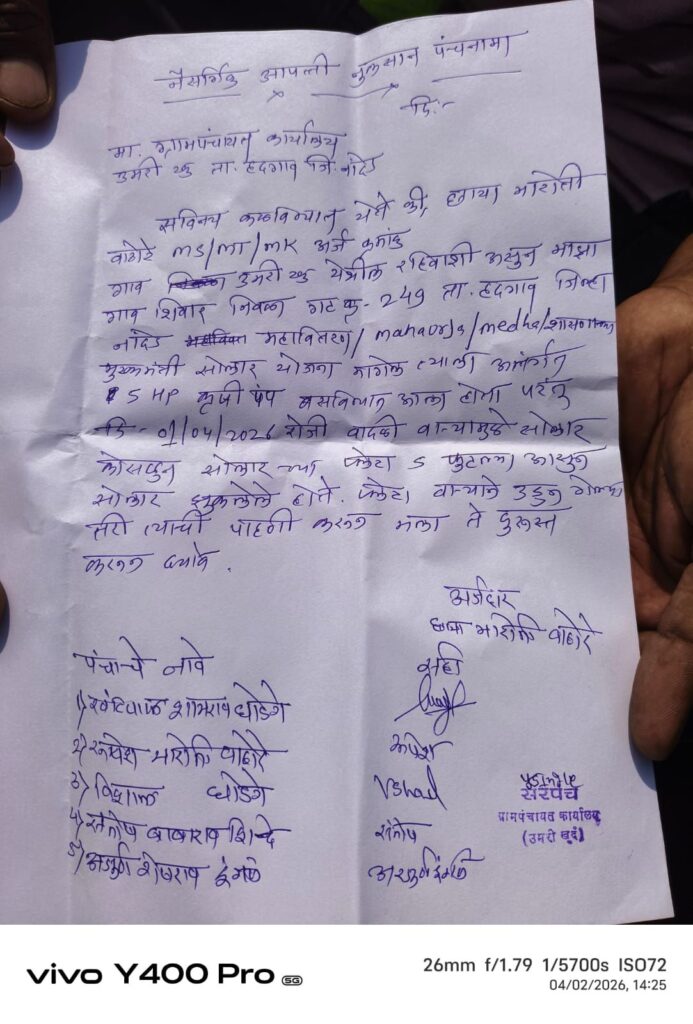 नैसर्गिक आपत्ती नुकसान पंचनामा
दि:-
मा. ग्रामपंचायत कार्यालय
उमरी खु ता. हदगाव जि. नांदेड
सविनय कळविण्यात येते की, छाया मारोती
वाठोरे MS/MT/MK अर्ज क्रमांक
गाव उमरी खु येथील रहिवाशी असुन माझा
गाव शिवार निवळा गट क्र- 249 ता. हदगाव जिल्हा
नांदेड महावितरण/ mahaurja/medha/शासनाच्या
मुख्यमंत्री सोलार योजना मागेल त्याला अंतर्गत
5 HP कृषी पंप बसविण्यात आला होता परंतु
दि- 01/04/2026 रोजी वादळी वाऱ्यामुळे सोलार
कोसळुन सोलार च्या प्लेटा 5 फुटल्या असुन
सोलार झुकलेले होते. प्लेटा वाऱ्याने उडुन गेल्या
तरी त्याची पाहणी करून मला ते दुरुस्त
करून द्यावे.
अर्जदार
छाया मारोती वाठोरे
पंचाचे नावे
सही
1) शामराव धोंडगे
2) रूपेश मारोती वाठोरे
रूपेश
3) विशाल धोंडगे
Vshal
4) संतोष बाबाराव शिंदे
संतोष
5) शेषराव इंगळे
सरपंच
ग्रामपंचायत कार्यालय
(उमरी खुर्द)
vivo Y400 Pro 5G
26mm f/1.79 1/5700s ISO72
04/02/2026, 14:25